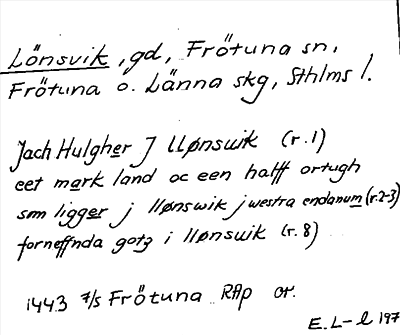 Lönsvik, gd, Frötuna sn,
Frötuna o. Länna skg, Sthlms l.
Jach Hulgher J llønswik (r.1)
eet mark land oc een halff ortugh
som ligger j llønswik j westra endanum (r.2-3)
forneffnda gotz i llønswik (r.8)
1443 7/5 Frötuna RAp or.
E. L-l 197